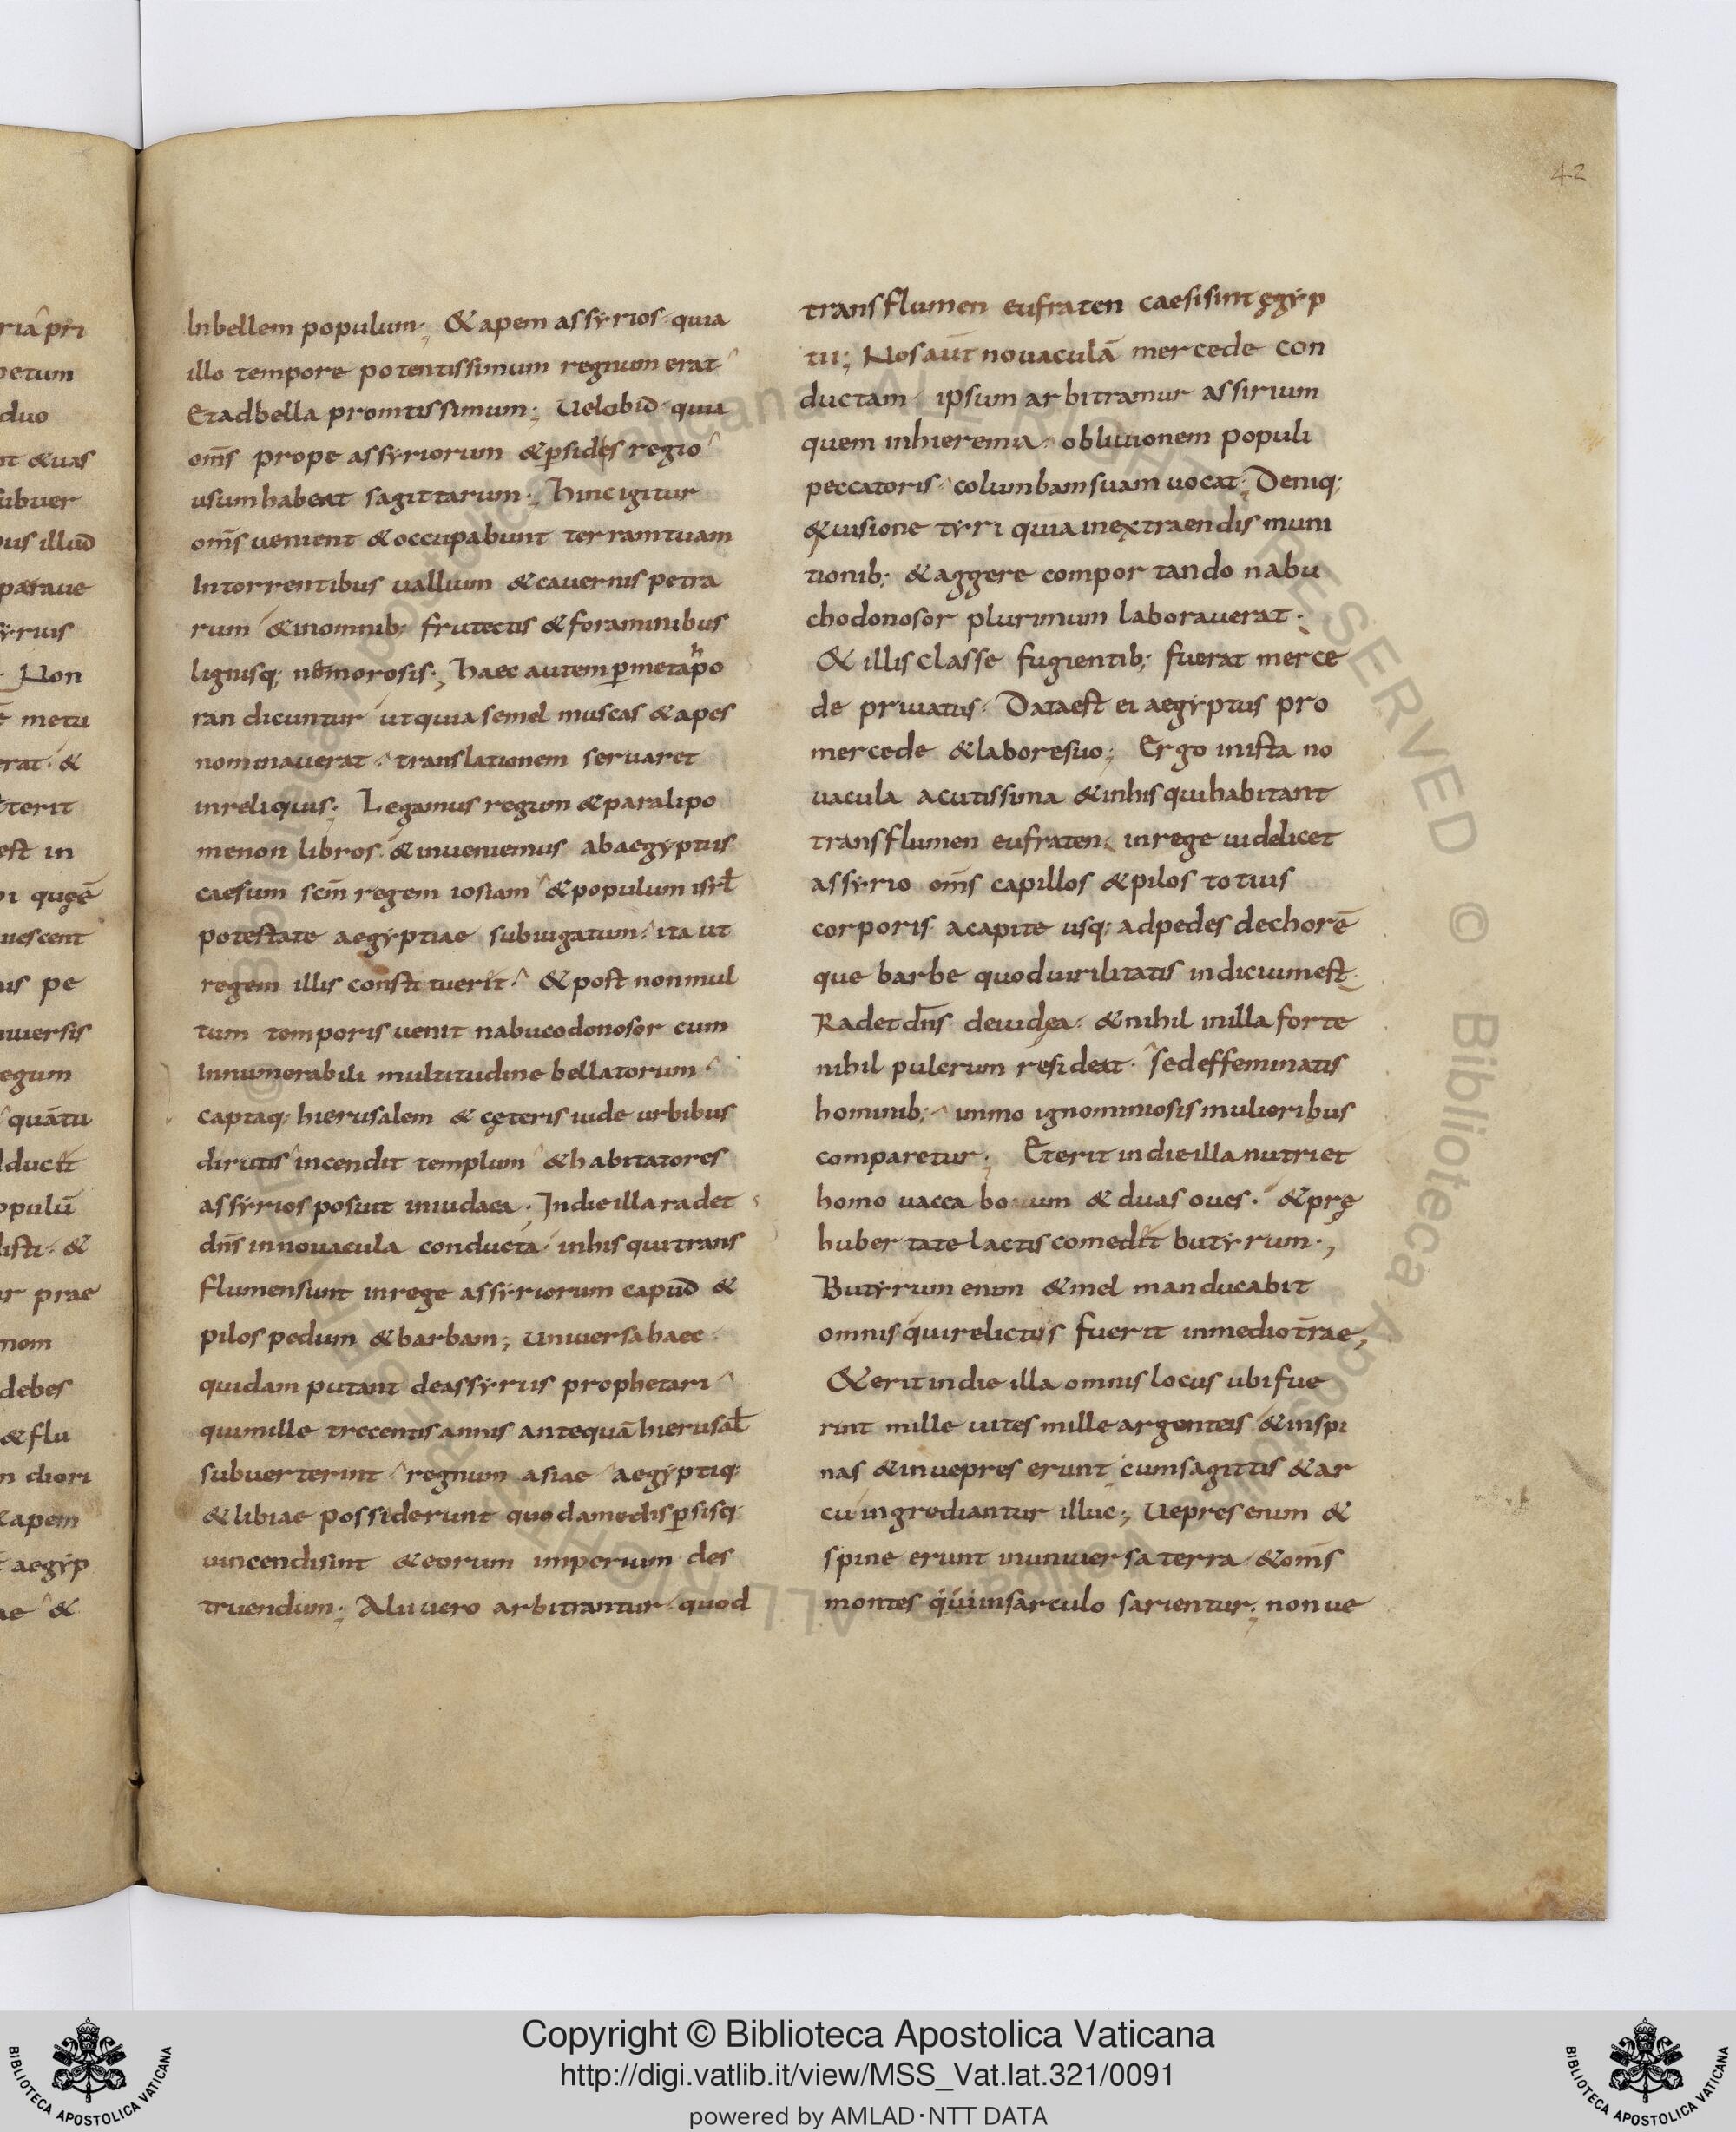 42
riā pri
petum
duo
nt & uas
subuer
pus illud̄
parauae
syrius
Non
metu
erat & 
terit
est in
pi quęē
uescent
uis pe
niuersis
egum
quātu
ducit
opulū
listi &
ur prae
nom
debes
& flu
n diori
& apem
aegyp
ae &
Inbellem populum; & apem assyrios quia
illo tempore potentissimum regnum erat
Et ad bella promtissimum; Uel obid̄ quia
om̄s prope assyriorum & psides regio
usum habeat sagittarum; Hinc igitur
om̄s uenient & occupabunt terram tuam
In torrentibus uallium & cauernis petra
rum & in omnib; frutectis & foraminibus
lignisq; nemorosis; Haec autem p metapho
ran dicuntur ut quia semel muscas & apes
nominauerat translationem seruaret
in reliquis; Legamus regum & paralipo
menon libros & inueniemus ab aegyptiis
caesum sc̄m regem iosiam & populum isrł
potestate aegyptiae subiugatum ita ut
regem illis constituerit & post non mul
tum temporis uenit nabucodonosor cum
Innumerabili multitudine bellatorum
captaq; hierusalem & cęteris iude urbibus
dirutis incendit templum & habitatores
assyrios posuit in iudaea; In die illa radet
dn̄s in nouacula conducta in his qui trans
flumen sunt in rege assyriorum capud̄ &
pilos pedum & barbam; Uniuersa haec
quidam putant de assyriis prophetari
qui mille trecentis annis antequā hierusał
subuerterint regnum asiae aegyptiq;
& libiae possiderunt quod a medis psisq;
uincendi sint & eorum imperium des
truendum; Alii uero arbitrantur quod
trans flumen eufraten caesi sint ęgyp
tii; Nos aūt nouaculā mercede con
ductam ipsum arbitramur assirium
quem in hieremia obliuionem populi
peccatoris columbam suam uocat; Deniq;
& uisione tyri quia in extraendis muni
tionib; & aggere comportando nabu
chodonosor plurimum laborauerat
& illis classe fugientib; fuerat merce
de priuatus Data est ei aegyptus pro
mercede & labore suo; Ergo in ista no
uacula acutissima & in his qui habitant
trans flumen eufraten in rege uidelicet
assyrio om̄s capillos & pilos totius
corporis a capite usq; ad pedes dechorē
que barbe quod uirilitatis indicium est
Radet dn̄s de iudęa & nihil in illa forte
nihil pulcrum resideat sed effeminatis
hominib; immo ignominiosis mulieribus
comparetur; Et erit in die illa nutriet
homo uacca bouum & duas oues & prę
hubertate lactis comedit butyrum;
Butyrum enim & mel manducabit
omnis qui relictus fuerit in medio tr̄ae;
& erit in die illa omnis locus ubi fue
rint mille uites mille argenteis & in spi
nas & in uepres erunt cum sagittis & ar
cu ingrediantur illuc; Uepres enim &
spine erunt in uniuersa terra & om̄s
montes qui in sarculo sarientur; non ue
Copyright © Biblioteca Apostolica Vaticana
http://digi.vatlib.it/view/MSS_Vat.lat.321/0091
powered by AMLAD·NTT DATA
BIBLIOTECA APOSTOLICA VATICANA
BIBLIOTECA APOSTOLICA VATICANA